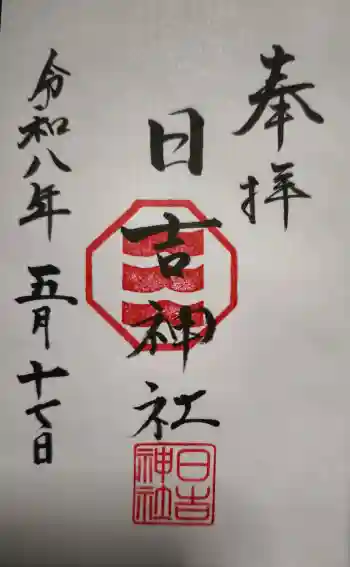 奉拝
日吉神社
令和八年五月十七日
日吉神社